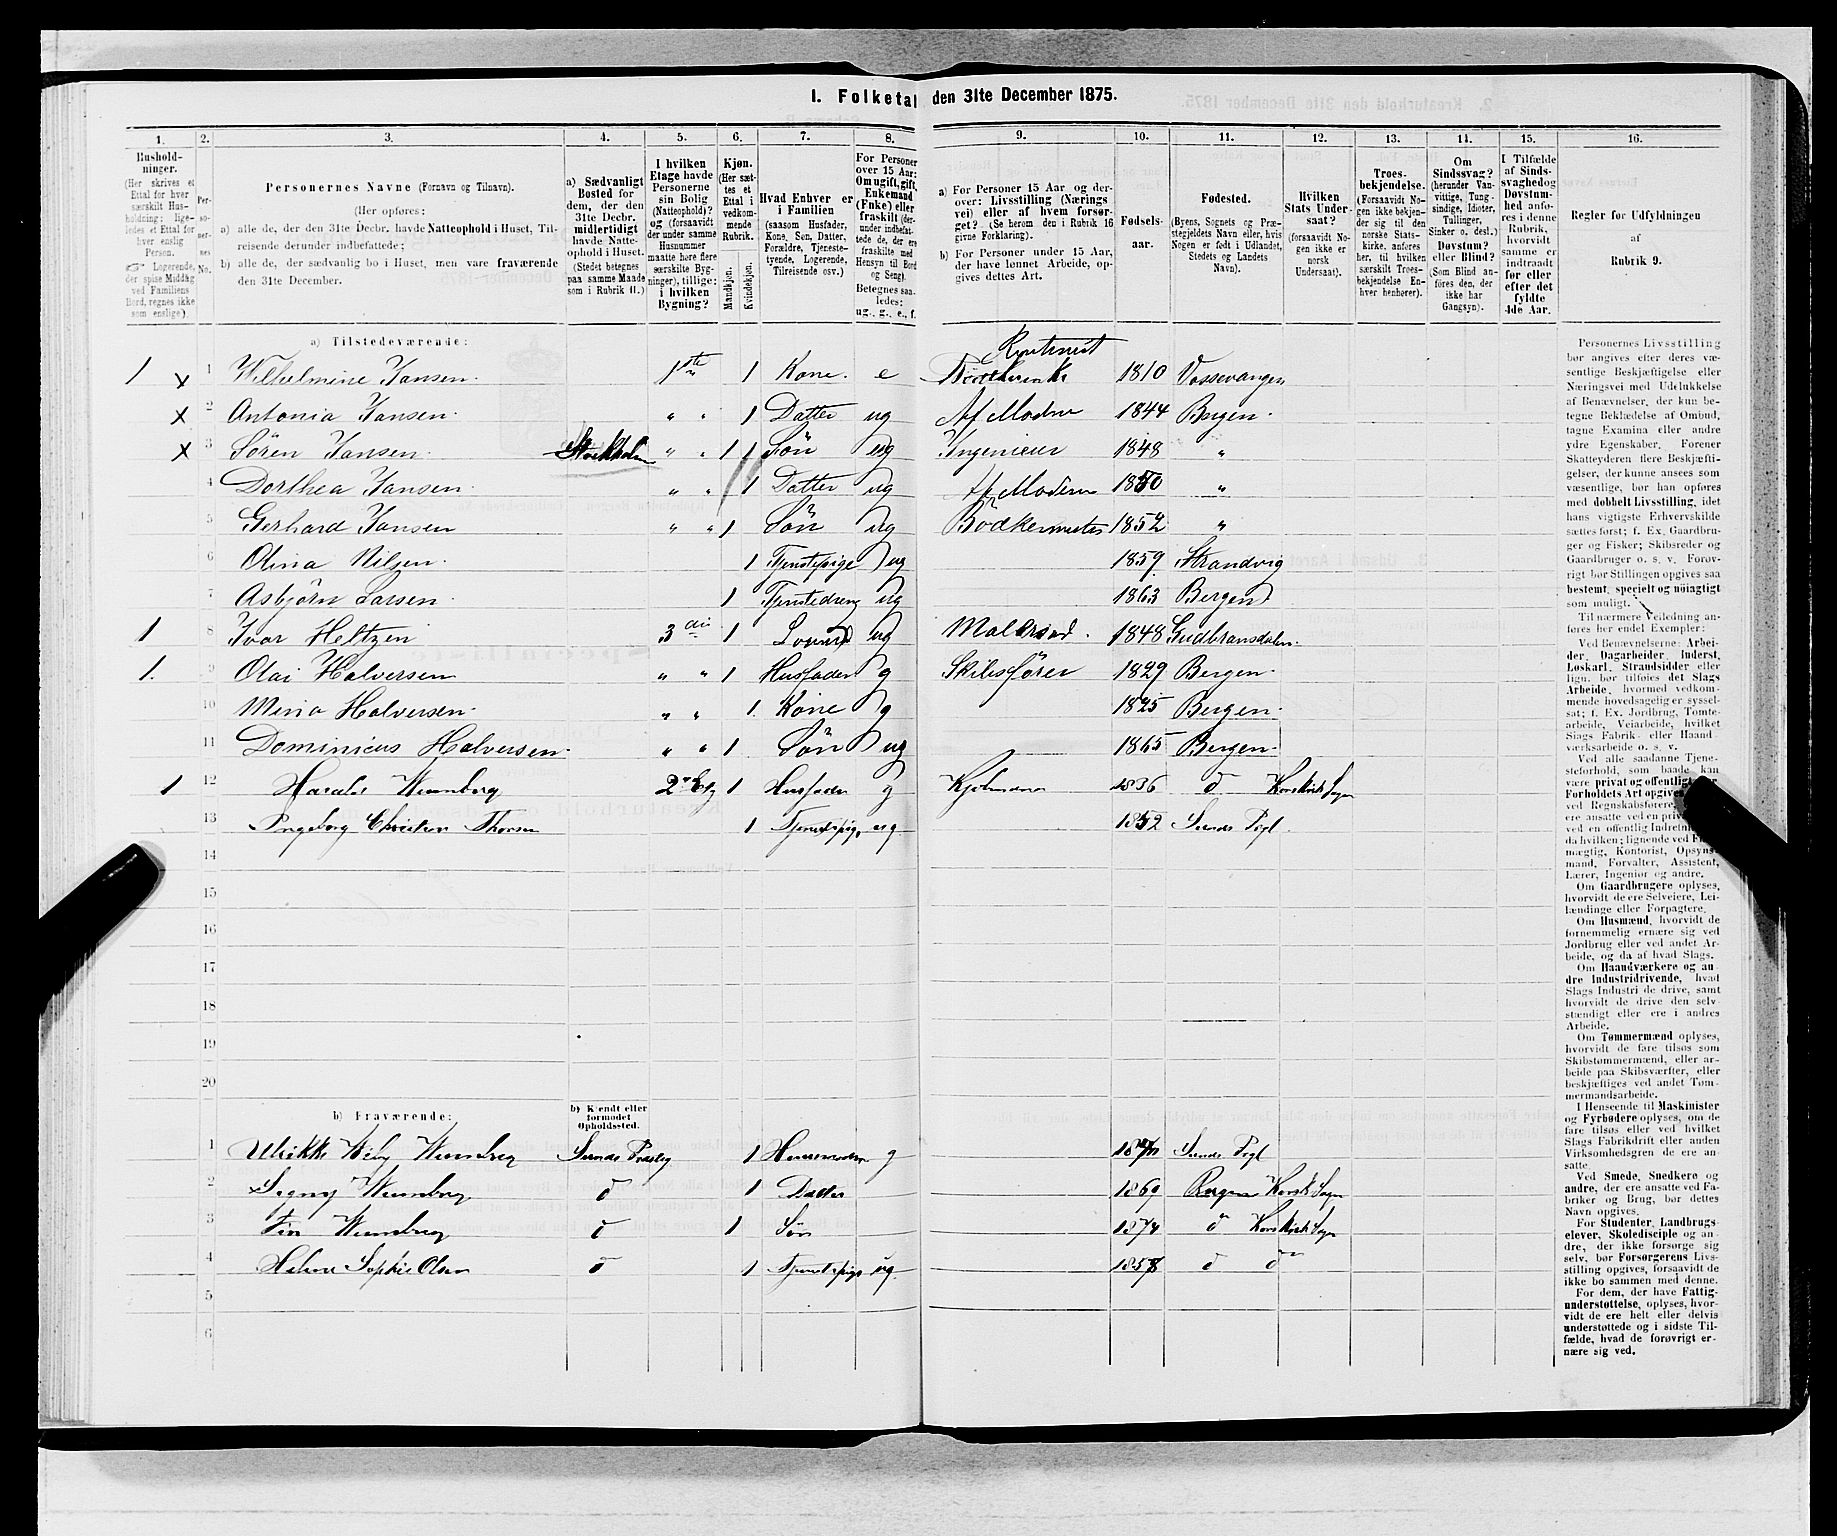 1. Folketal den 31te December 1875.
1.
Husholdninger.
(Her skrives et Ettal for hver særskilt Husholdning; ligeledes et Ettal for hver enslig Person.
☞ Logerende, der spise Middag ved Familiens Bord, regnes ikke som enslige).
2.
Personernes No.
3.
Personernes Navne (Fornavn og Tilnavn).
(Her opføres:
a) alle de, der den 31te Decbr. havde Natteophold i Huset, Tilreisende derunder indbefattede;
b) alle de, der sædvanlig bo i Huset, men vare fraværende den 31te December.
4.
a) Sædvanligt Bosted for dem, der den 31te Decbr. midlertidigt havde Natteophold i Huset.
(Stedet betegnes paa samme Maade som i Rubrik 11.)
5.
I hvilken Etage havde Personerne sin Bolig (Natteophold)? og (forsaavidt der under samme Husnummer maatte høre flere særskilte Bygninger), tillige: i hvilken Bygning?
6.
Kjøn.
(Her sættes et Ettal i vedkommende Rubrik.
Mandkjøn.
Kvindekjøn.
7.
Hvad Enhver er i Familien
(saasom Husfader, Kone, Søn, Datter, Forældre, Tjenestetyende, Logerende, Tilreisende osv.)
8.
For Personer over 15 Aar: Om ugift, gift, Enkemand (Enke) eller fraskilt (derunder indbefattede de, der ere fraskilte med Hensyn til Bord og Seng).
Betegnes saaledes:
ug., g., e., f.
9.
a) For Personer 15 Aar og derover: Livsstilling (Næringsvei) eller af hvem forsørget? (Se herom den i Rubrik 16 givne Forklaring).
b) For Personer under 15 Aar, der have lønnet Arbeide, opgives dettes Art.
10.
Fødselsaar.
11.
Fødested.
(Byens, Sognets og Præstegjeldets Navn eller, hvis Nogen er født i Udlandet, Stedets og Landets Navn).
12.
Hvilken Stats Undersaat?
(forsaavidt Nogen ikke er norsk Undersaat).
13.
Troesbekjendelse.
(Forsaavidt Nogen ikke bekjender sig til den norske Statskirke, anføres her, til hvilken særskilt Troesbekjendelse Enhver henhører).
14.
Om Sindssvag? (herunder Vanvittige, Tungsindige, Idioter, Tullinger, Sinker o. desl.) Døvstum? eller Blind?
(Som Blind anføres den, der ikke har Gangsyn).
15.
I Tilfælde af Sindssvaghed og Døvstumhed anføres i denne Rubrik, hvorvidt samme er indtraadt før eller efter det fyldte 4de Aar.
16.
Regler for Udfyldningen
af
Rubrik 9.
a) Tilstedeværende:
Rentenist
1 x 1 Wilhelmine Jansen. 1ste 1 Kone. e 1810 Vossevangen
x 2 Antonia Jansen. " " 1 Datter ug Af Modren 1844 Bergen.
x 3 Sören Jansen. Stockholm " " 1 Sön ug Ingenieur 1848 "
4 Dorthea Jansen. " " 1 Datter ug Af Moderen 1850 "
5 Gerhard Jansen " " 1 Sön ug Bödkermester 1852 "
6 Olina Nilsen. 1 Tjenstepige ug 1859 Strandvig
7 Asbjörn Larsen. 1 Tjenstedreng ug 1863 Bergen
1 8 Ivar Heltzen 3die 1 ug 1848 Gudbransdalen.
1. 9 Olai Halversen " " 1 Husfader g Skibsförer 1829 Bergen.
10 Mina Halversen. " " 1. Kone g 1825 Bergen.
11 Dominicus Halversen. " " 1 Sön ug 1865 Bergen.
1 12 Harald 2 Etg 1 Husfader g Kjøbmand 1836 d Korskirk Sogn
13 Ingeborg Thorsen 1 Tjenestepige ug 1852
14
15
16
17
18
19
20
b) Fraværende:
b) Kjendt eller formodet Opholdssted.
1 Ulrikke 1 Huusmoder g
2 Signy d 1 Datter 1869 Bergen Korsk Sogn
3 d 1 Søn 1874 d Korskirk Sogn
4 Sophie Olsen d 1 Tjenestepige ug d d
5
6
Personernes Livsstilling bør angives efter deres væsentlige Beskjæftigelse eller Næringsvei med Udelukkelse af Benævnelser, der kun betegne Beklædelse af Ombud, tagne Examina eller andre ydre Egenskaber. Forener Skatteyderen flere Beskjæftigelser, der kunne ansees som væsentlige, bør han opføres med dobbelt Livsstilling, idet hans vigtigste Erhvervskilde sættes først; f. Ex. Gaardbruger og Fisker; Skibsreder og Gaardbruger o. s. v. Forøvrigt bør Stillingen opgives saa bestemt, specielt og nöiagtigt som muligt.
Til nærmere Veiledning anføres her endel Exempler:
Ved Benævnelserne: Arbeider, Dagarbeider, Inderst, Løskarl, Strandsidder eller lign. bør tilføies det Slags Arbeide, hvormed vedkommende hovedsagelig er sysselsat; f. Ex. Jordbrug, Tomtearbeide, Veiarbeide, hvilket Slags Fabrik- eller Haandværksarbeide o. s. v.
Ved alle saadanne Tjenesteforhold, som baade kan være privat og offentligt, bør Forholdets Art opgives
ved Regnskabsførere,
ved en offentlig
da hvilken; lignende ved
mægtig, Kontorist, Opsynsmand, Forvalter, Assistent, Lærer, Ingeniør og andre.
Om Gaardbrugere oplyses, hvorvidt de ere Selveiere, Leilændinge eller Forpagtere.
Om Husmænd, hvorvidt de fornemmelig ernære sig ved Jordbrug eller ved andet Arbeide, og da af hvad Slags.
Om Haandværkere og andre Industridrivende, hvad Slags Industri de drive, samt hvorvidt de drive den selvstændigt eller ere i andres Arbeide.
Om Tømmermænd oplyses, hvorvidt de fare tilsøs som Skibstømmermænd, eller arbeide paa Skibsværfter, eller beskjæftiges ved andet Tømmermandsarbeide.
I Henseende til Maskinister og Fyrbødere oplyses, om de fare tilsøs eller ved hvilket Slags Fabrikdrift eller anden Virksomhedsgren de ere ansatte.
Ved Smede, Snedkere og andre, der ere ansatte ved Fabriker og Brug, bør dettes Navn opgives.
For Studenter, Landbrugselever, Skoledisciple og andre, der ikke forsørge sig selv, bør Forsørgerens Livsstilling opgives, forsaavidt de ikke bo sammen med denne.
For dem, der have Fattigunderstøttelse, oplyses, hvorvidt de ere helt eller delvis understøttede og i sidste Tilfælde, hvad de forøvrigt ernære sig ved.